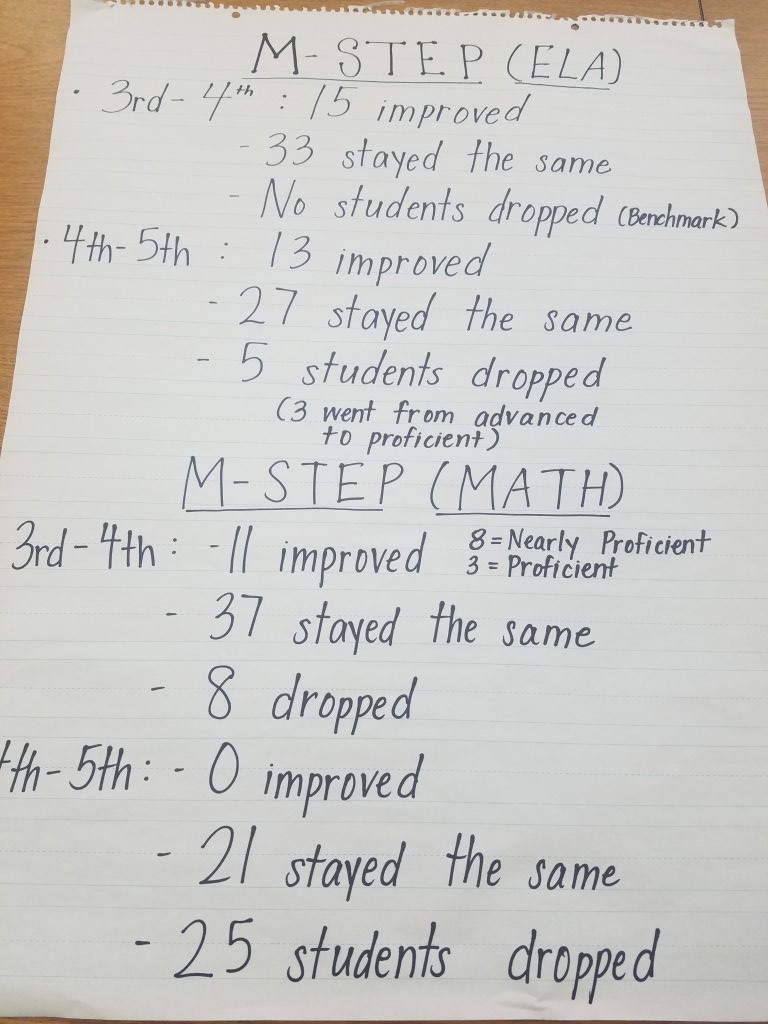 M-STEP (ELA)
· 3rd-4th : 15 improved
- 33 stayed the same
- No students dropped (Benchmark)
· 4th-5th : 13 improved
- 27 stayed the same
- 5 students dropped
(3 went from advanced
to proficient)
M-STEP (MATH)
3rd-4th: -11 improved 8=Nearly Proficient
3 = Proficient
- 37 stayed the same
- 8 dropped
4th-5th: - 0 improved
- 21 stayed the same
- 25 students dropped